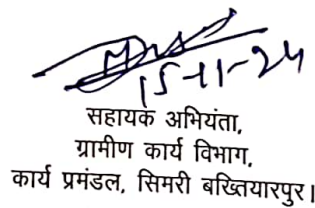 15-11-24
सहायक अभियंता,
ग्रामीण कार्य विभाग,
कार्य प्रमंडल, सिमरी बख्तियारपुर।